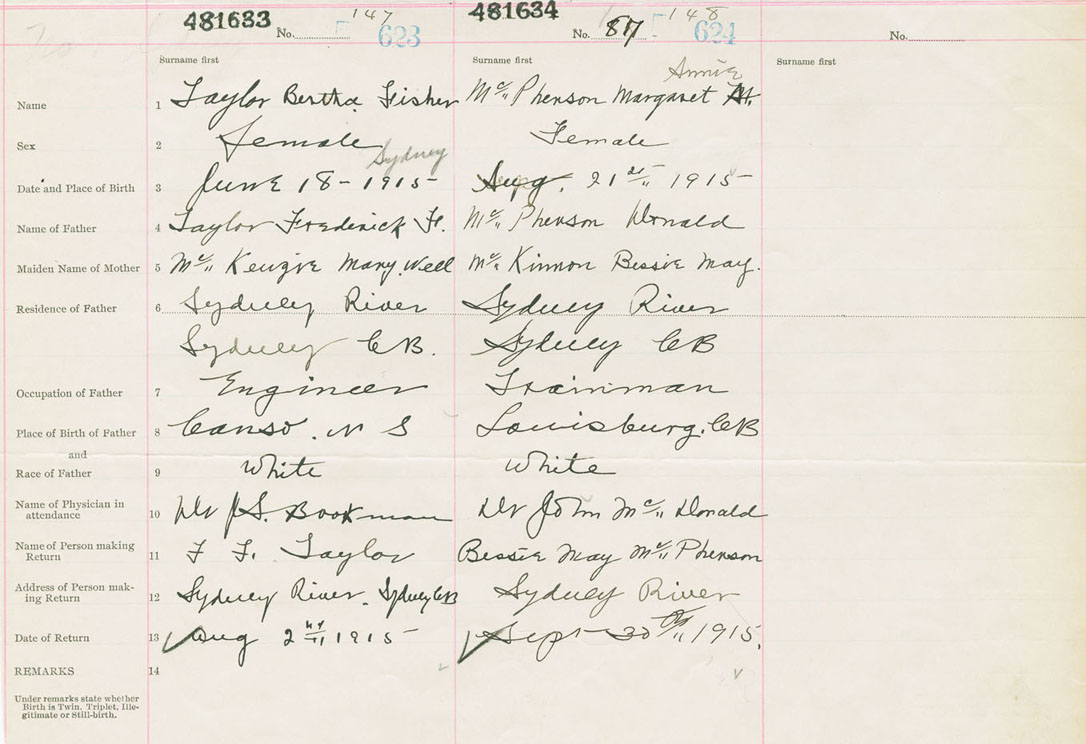 481633 481634
No. 147 623 No. 87 148 624 No.
Surname first Surname first Surname first
Annie
Name 1 Taylor Bertha Fisher Mc Pherson Margaret A.
Sex 2 female Female
Sydney
Date and Place of Birth 3 June 18 - 1915 Aug. 21st 1915
Name of Father 4 Taylor Frederick F. Mc Pherson Donald
Maiden Name of Mother 5 Mc Kenzie Mary Well Mc Kinnon Bessie May.
Residence of Father 6 Sydney River Sydney River
Sydney CB. Sydney CB
Occupation of Father 7 Engineer Trainman
Place of Birth of Father 8 Canso. N S Louisburg. CB
and
Race of Father 9 White White
Name of Physician in
attendance 10 Dr J.S. Bookman Dr John Mc Donald
Name of Person making
Return 11 F F. Taylor Bessie May Mc Pherson
Address of Person mak-
ing Return 12 Sydney River. Sydney CB Sydney River
Date of Return 13 Aug 2nd 1915 Sept 30th 1915.
REMARKS 14
Under remarks state whether
Birth is Twin, Triplet, Ille-
gitimate or Still-birth.